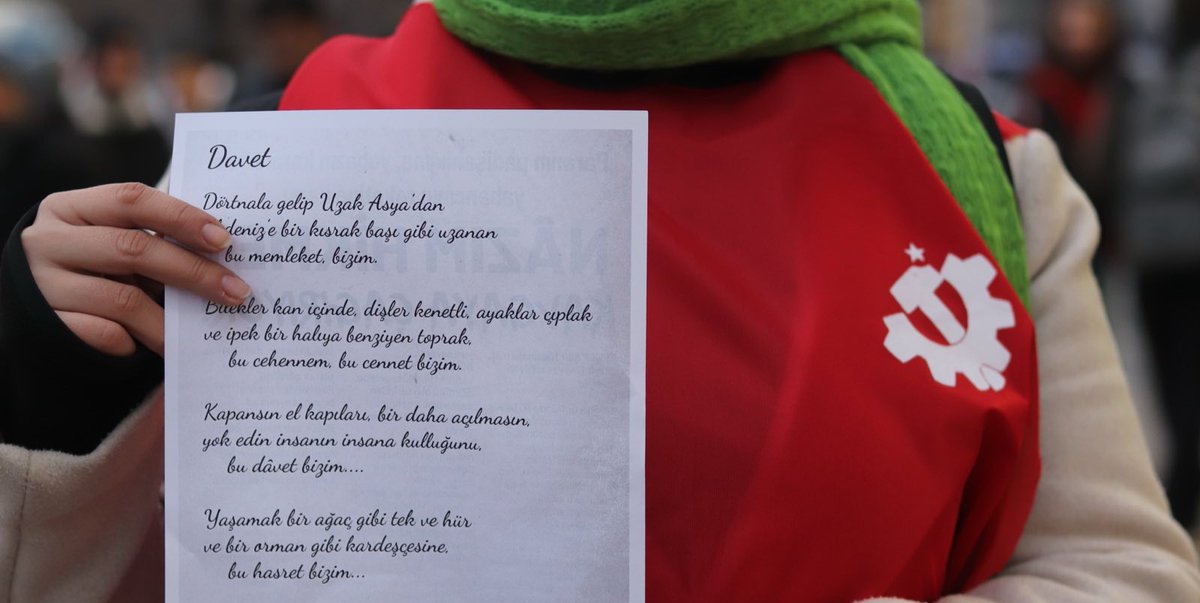 Davet
Dörtnala gelip Uzak Asya'dan
bir kısrak başı gibi uzanan
bu memleket, bizim.
kan içinde, dişler kenetli, ayaklar çıplak
ve ipek bir halıya benziyen toprak,
bu cehennem, bu cennet bizim.
Kapansın el kapıları, bir daha açılmasın,
yok edin insanın insana kulluğunu,
bu dâvet bizim....
Yaşamak bir ağaç gibi tek ve hür
ve bir orman gibi kardeşçesine,
bu hasret bizim...